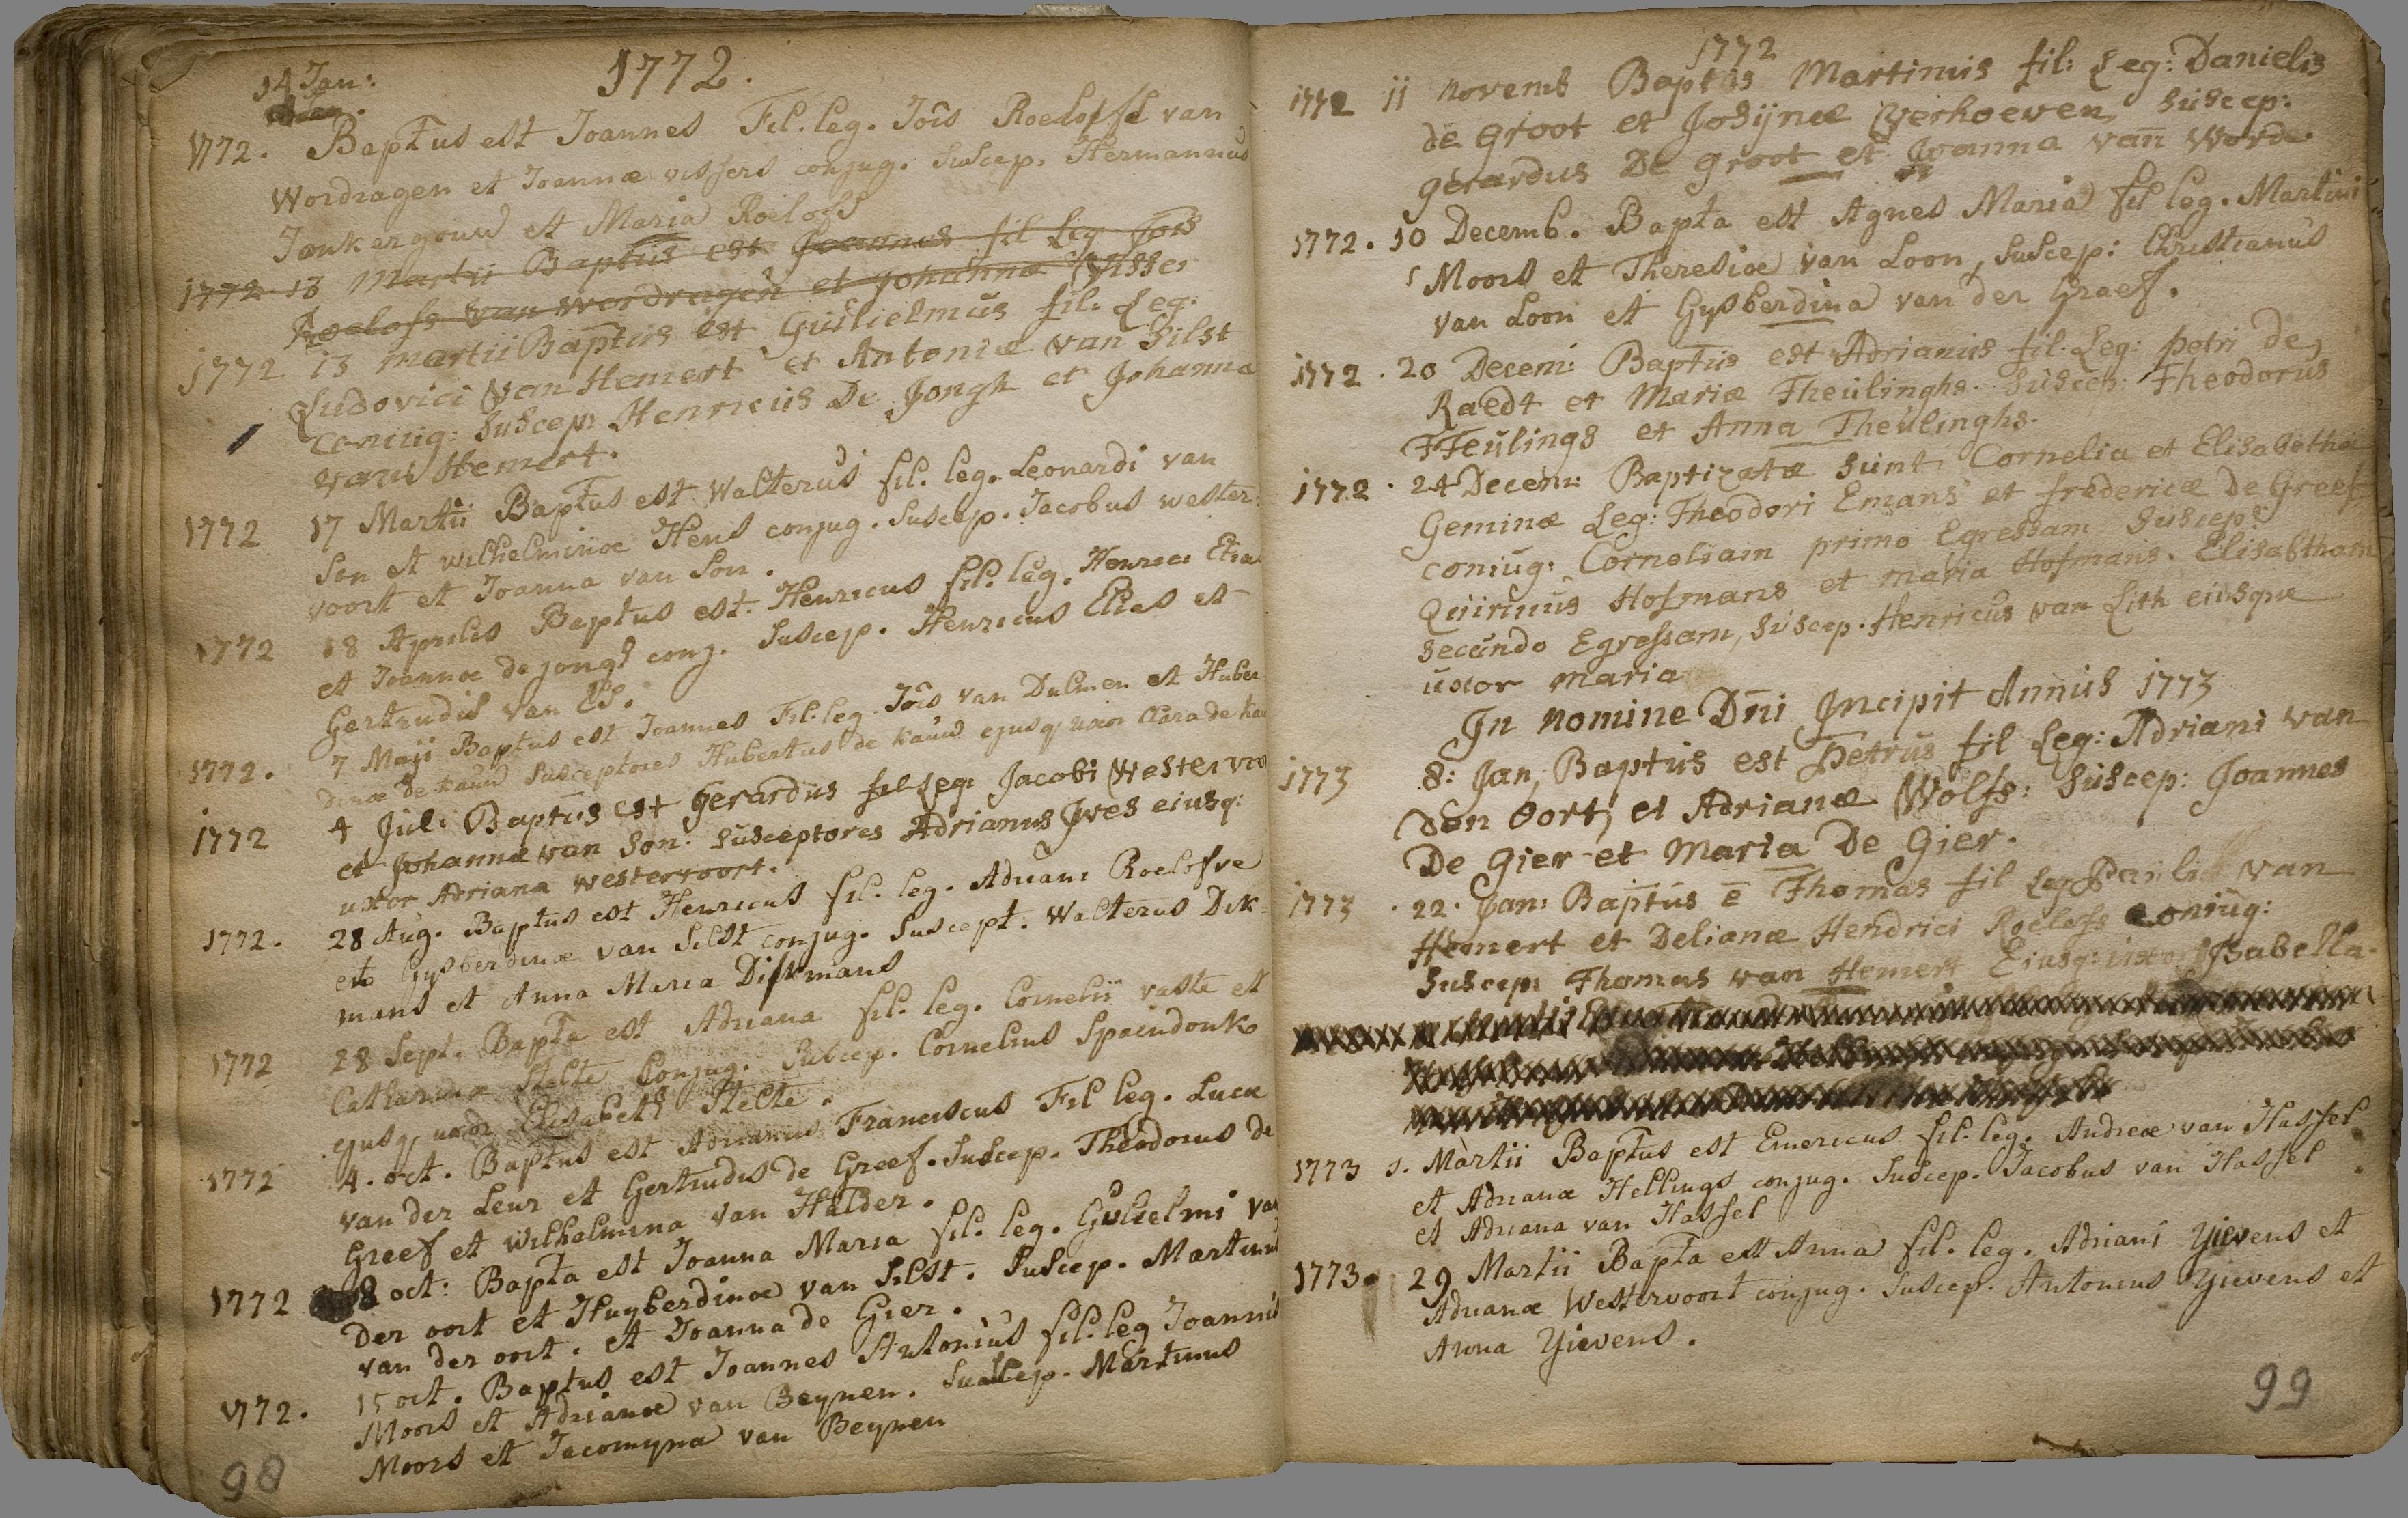 1772.
14 Jan:
1772. Baptus est Joannes Fil. leg. Joīs Roeloffse van
Wordragen et Joannæ vissers conjug. Suscep. Hermannus
Jonkergouw et Maria Roelofs
1772 13 Martii Baptus est Joannes fil Leg Jois
Roelofs van wordragen et Johannæ Visser
1772 13 martii Baptus est Guilielmus fil: Leg:
Ludovici Van Hemert et Antoniæ van Silst
coniug: Suscep: Henricus De Jongh et Johanna
van Hemert.
1772 17 Martii Baptus est Walterus fil. leg. Leonardi van
Son et Wilhelminæ Hens conjug. Suscep. Jacobus wester:
voort et Joanna van Son.
1772 18 Aprilis Baptus est Henricus fil. leg. Henrici Elias
et Joannæ de jongh conj. Suscep. Henricus Elias et
Gertrudis van Es.
1772. 7 Maji Baptus est Joannes Fil. leg Joīs van Dulmen et Huber
dinæ de kauw Susceptores Hubertus de kauw ejusq uxor Clara de kau
1772 4 Juli Baptus est Gerardus fil Leg: Jacobi Westervoo
et Johannæ van Son: Susceptores Adrianus Jves eiusq:
uxor Adriana westervoort.
1772. 28 Aug. Baptus est Henricus fil. leg. Adriani Roelofse
et Gysberdinæ van Silst conjug. Suscept. Walterus Dik=
mans et Anna Maria Dikmans
1772 28 Sept. Bapta est Adriana fil. leg. Cornelii vaste et
Catharinæ Stelte Conjug. Suscep. Cornelius Spaendonk
ejusq uxor Elisabeth Stelte.
1772 4. oct. Baptus est Adrianus Franciscus Fil leg. Lucæ
van der Leur et Gertrudis de Greef. Suscep. Theodorus de
Greef et Wilhelmina van Hulder.
1772 8 oct: Bapta est Joanna Maria fil. leg. Gulielmi van
Der oort et Huyberdinæ van Silst. Suscep. Martinus
van der oort. et Joanna de Gier.
1772. 15 oct. Baptus est Joannes Antonius fil. leg Joannis
Moors et Adrianæ van Beynen. Suscep. Martinus
Moors et Jacomyna van Beynen
98
1772
1772 11 novemb Baptus Martinus fil: Leg: Danielis
de groot et Josijnæ Verhoeven Suscep:
gerardus De groot et Joanna van Worde
1772. 10 Decemb. Bapta est Agnes Maria fil leg. Martini
Moors et Theresiæ van Loon, Suscep: Christianus
van Loon et Gysberdina van der Graef.
1772. 20 Decem: Baptus est Adrianus fil. Leg: petri de
Raedt et Mariæ Theulinghs. Suscep: Theodorus
Theulings et Anna Theulinghs.
1772. 24 Decem: Baptizatæ sunt Cornelia et Elisabetha
Geminæ Leg: Theodori Emans et fredericæ de Greef
coniug: Corneliam primo Egressam Suscep:
Quirinus Hofmans et maria Hofmans. Elisabtham
secundo Egressam, Suscep. Henricus van Lith eiusque
uxor maria
In nomine Dni Incipit Annus 1773
1773 8: Jan, Baptus est Petrus fil Leg: Adriani van
Den Oort, et Adrianæ Wolfs: Suscep: Joannes
De Gier et Maria De Gier.
1773 . 22. Jan: Baptus ē Thomas fil Leg Pauli van
Hemert et Delianæ Hendrici Roelofs Coniug:
Suscep: Thomas van Hemert Eiusq: uxor Isabella
1773 1. Martii Baptus est Emericus fil. leg. Andreæ van Hassel
et Adrianæ Hellings conjug. Suscep. Jacobus van Hassel
et Adriana van Hassel
1773. 29 Martii Bapta est Anna fil. leg. Adriani Yievens et
Adrianæ Westervoort conjug. Suscep. Antonius Yievens et
Anna Yievens.
99